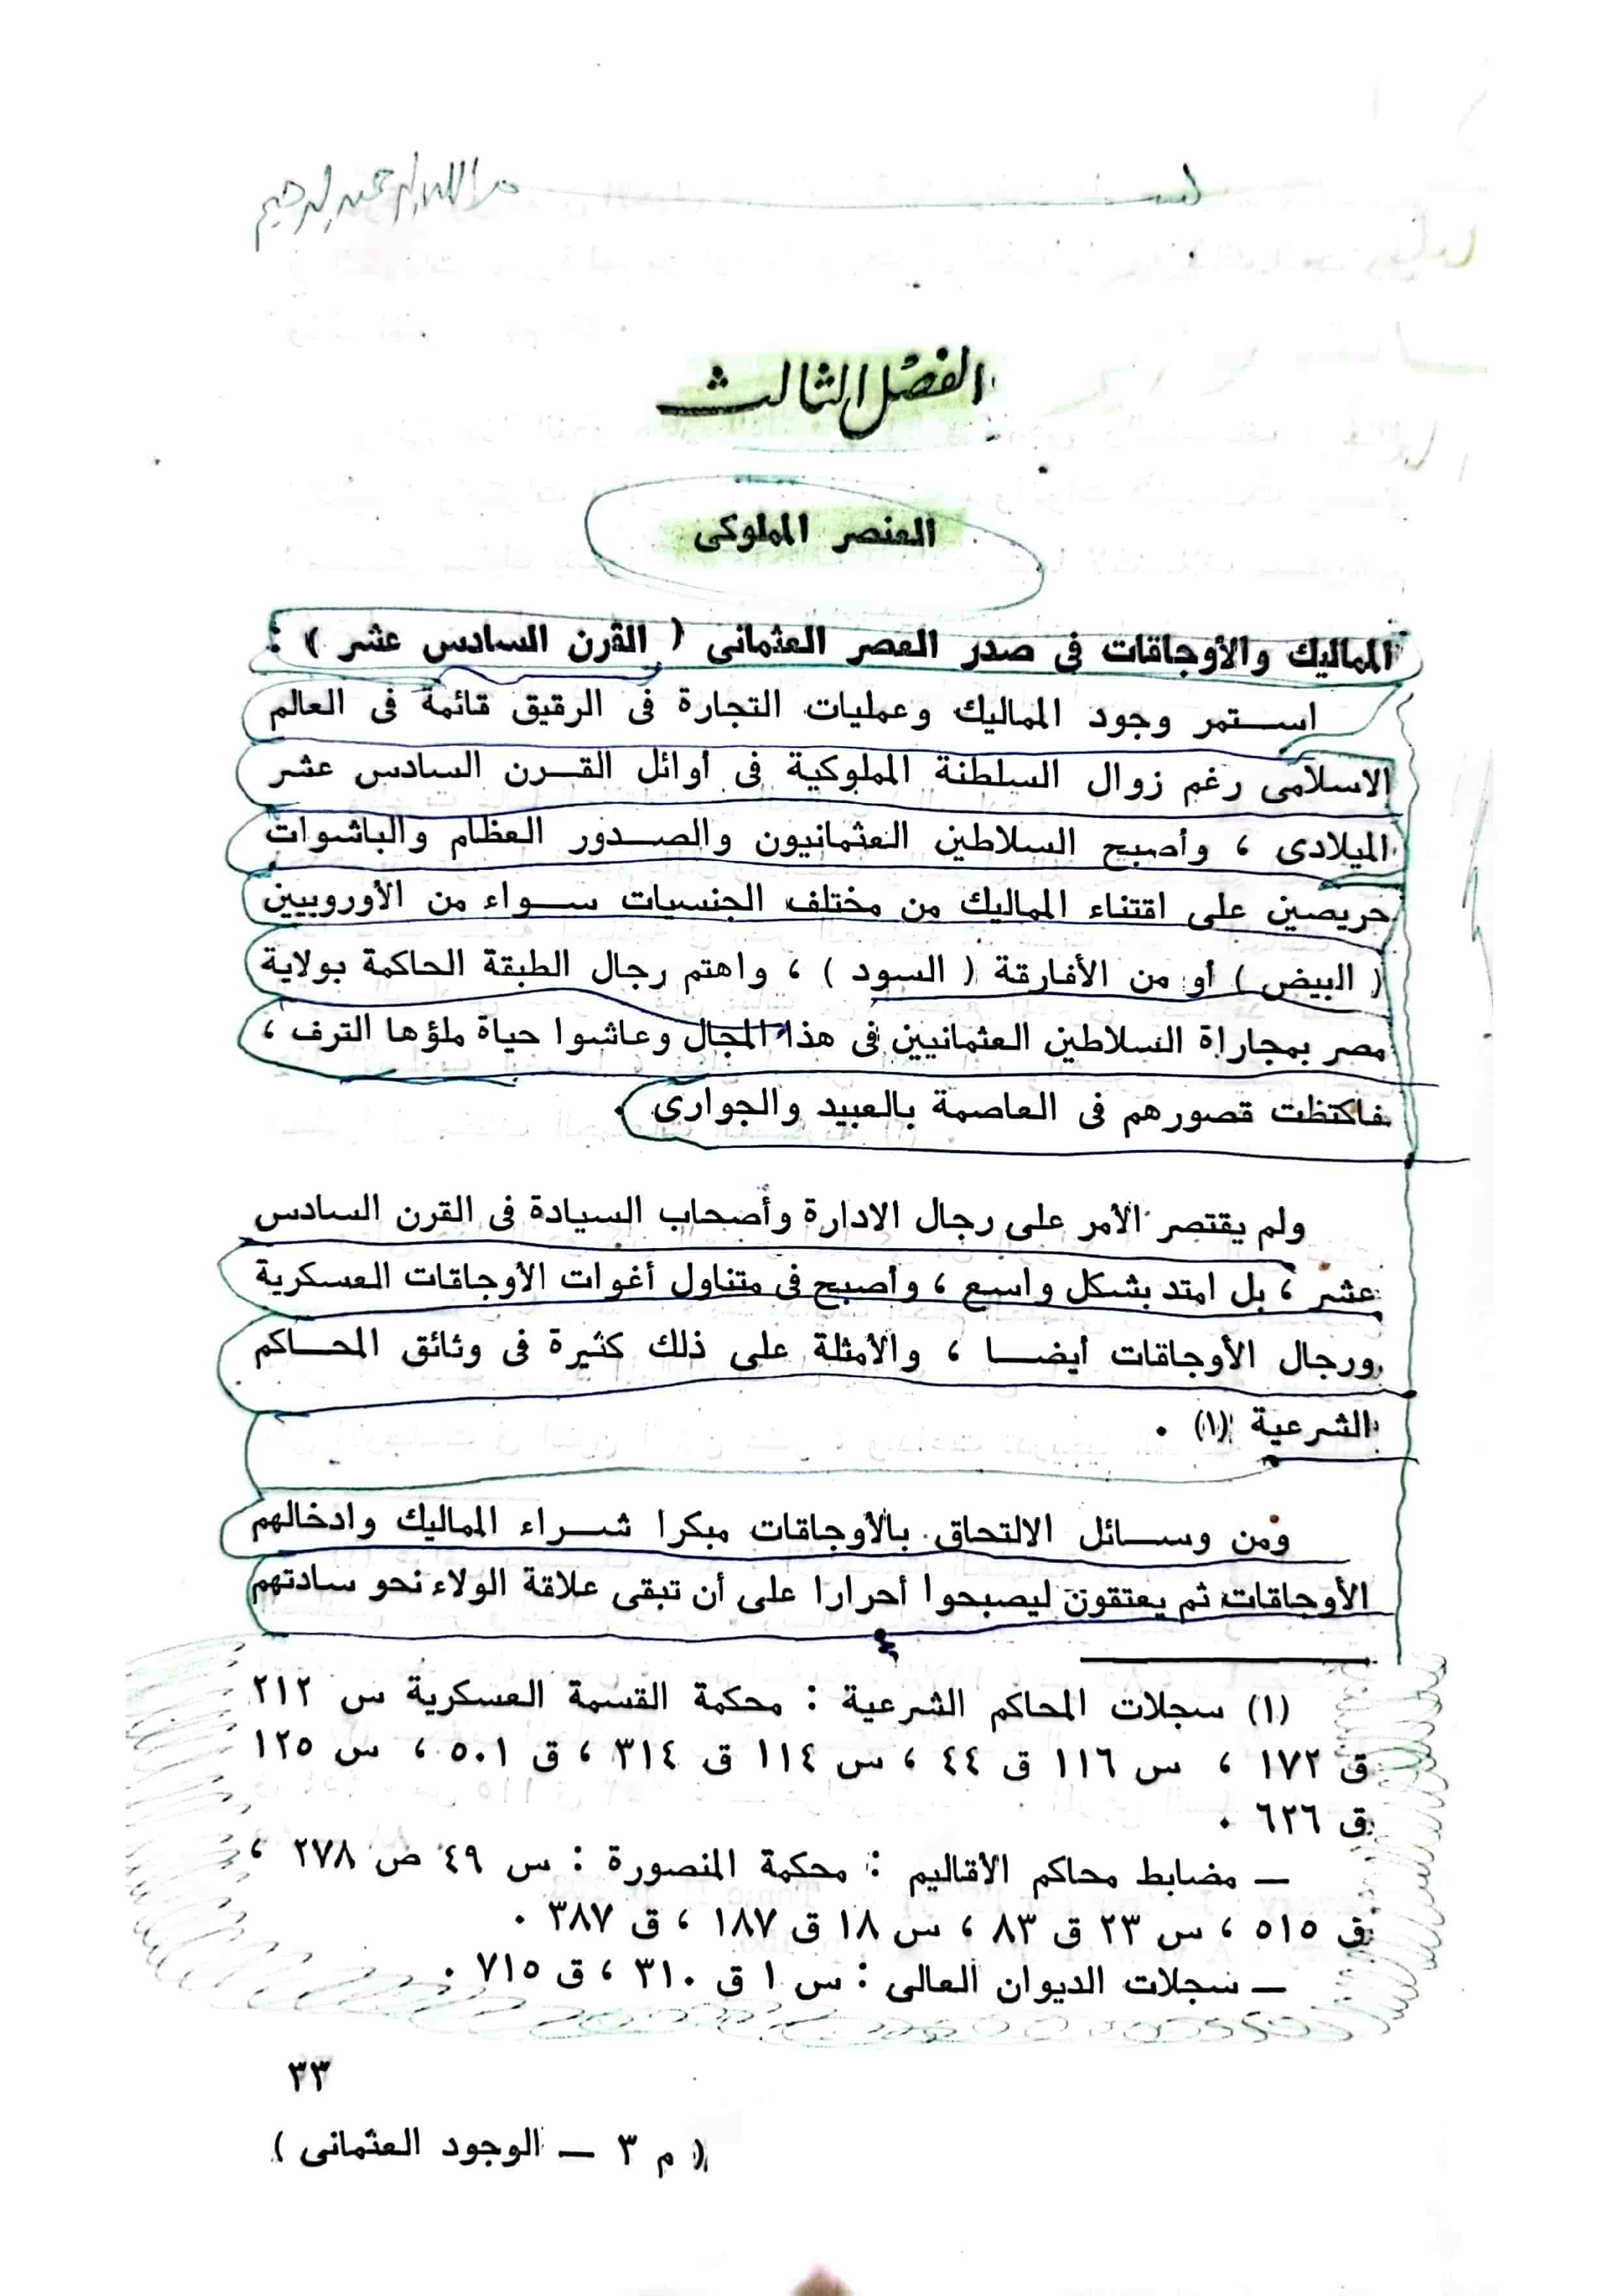 بسم الله الرحمن الرحيم
الفصل الثالث
العنصر المملوكى
المماليك والأوجاقات فى صدر العصر العثمانى ( القرن السادس عشر ) :
استمر وجود المماليك وعمليات التجارة فى الرقيق قائمة فى العالم
الاسلامى رغم زوال السلطنة المملوكية فى أوائل القرن السادس عشر
الميلادى ، وأصبح السلاطين العثمانيون والصدور العظام والباشوات
حريصين على اقتناء المماليك من مختلف الجنسيات سواء من الأوروبيين
( البيض ) أو من الأفارقة ( السود ) ، واهتم رجال الطبقة الحاكمة بولاية
مصر بمجاراة السلاطين العثمانيين فى هذا المجال وعاشوا حياة ملؤها الترف ،
فاكتظت قصورهم فى العاصمة بالعبيد والجوارى .
ولم يقتصر الأمر على رجال الادارة وأصحاب السيادة فى القرن السادس
عشر ، بل امتد بشكل واسع ، وأصبح فى متناول أغوات الأوجاقات العسكرية
ورجال الأوجاقات أيضا ، والأمثلة على ذلك كثيرة فى وثائق المحاكم
الشرعية (١) .
ومن وسائل الالتحاق بالأوجاقات مبكرا شراء المماليك وادخالهم
الأوجاقات ثم يعتقون ليصبحوا أحرارا على أن تبقى علاقة الولاء نحو سادتهم
(١) سجلات المحاكم الشرعية : محكمة القسمة العسكرية س ٢١٢
ق ١٧٢ ، س ١١٦ ق ٤٤ ، س ١١٤ ق ٣١٤ ، ق ٥٠١ ، س ١٢٥
ق ٦٢٦ .
— مضابط محاكم الأقاليم : محكمة المنصورة : س ٤٩ ص ٢٧٨ ،
ق ٥١٥ ، س ٢٣ ق ٨٣ ، س ١٨ ق ١٨٧ ، ق ٣٨٧ .
— سجلات الديوان العالى : س ١ ق ٣١٠ ، ق ٧١٥ .
٣٣
( م ٣ — الوجود العثمانى )